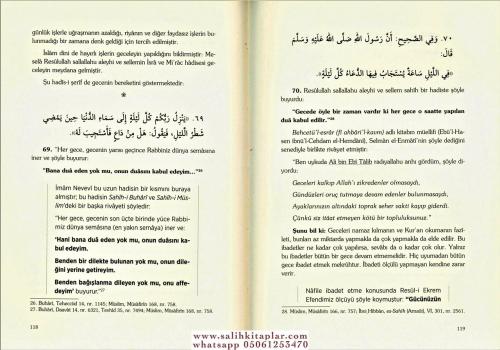 günlük işlerle uğraşmanın azaldığı, riyânın ve diğer faydasız işlerin bu-
lunmadığı bir zamana denk geldiği için tercih edilmiştir.
İslâm dini de hayırlı işlerin geceleyin yapıldığını bildirmiştir: Mese-
lâ Resûlullah sallallahu aleyhi ve sellemin İsrâ ve Mi'râc hâdisesi ge-
celeyin meydana gelmiştir.
Şu hadis-i şerif de gecenin bereketini göstermektedir:
*
٦٩. يَنْزِلُ رَبُّكُمْ كُلَّ لَيْلَةٍ إِلَى سَمَاءِ الدُّنْيَا حِينَ يَمْضِي
شَطْرُ اللَّيْلِ، فَيَقُولُ: هَلْ مِنْ دَاعٍ فَأَسْتَجِيبَ لَهُ.
69. "Her gece, gecenin yarısı geçince Rabbiniz dünya semâsına
iner ve şöyle buyurur:
"Bana duâ eden yok mu, onun duâsını kabul edeyim..."26
İmâm Nevevî bu uzun hadisin bir kısmını buraya
almıştır; bu hadisin Sahîh-i Buhârî ve Sahîh-i Müs-
lim'deki bir başka rivâyeti şöyledir:
"Her gece, gecenin son üçte birinde yüce Rabbi-
miz dünya semâsına (en yakın semâya) iner ve:
'Hani bana duâ eden yok mu, onun duâsını ka-
bul edeyim.
Benden bir dilekte bulunan yok mu, onun dile-
ğini yerine getireyim.
Benden bağışlanma dileyen yok mu, onu affe-
deyim' buyurur."27
26. Buhârî, Teheccüd 14, nr. 1145; Müslim, Müsâfirîn 168, nr. 758.
27. Buhârî, Daavât 14, nr. 6321, Tevhîd 35, nr. 7494; Müslim, Müsâfirîn 168, nr. 758.
118
٧٠. وَفِي الصَّحِيحِ: أَنَّ رَسُولَ اللهِ صَلَّى اللهُ عَلَيْهِ وَسَلَّمَ
قَالَ:
«فِي اللَّيْلِ سَاعَةٌ يُسْتَجَابُ فِيهَا الدُّعَاءُ كُلَّ لَيْلَةٍ».
70. Resûlullah sallallahu aleyhi ve sellem sahih bir hadiste şöyle
buyurdu:
"Gecede öyle bir zaman vardır ki her gece o saatte yapılan
duâ kabul edilir."28
Behcetü'l-esrâr (fî ahbâri'l-kavm) adlı kitabın müellifi (Ebü'l-Ha-
sen İbnü'l-Cehdam el-Hemdânî), Selmân el-Enmâtî'nin şöyle dediğini
senediyle birlikte rivâyet etmiştir:
"Ben uykuda Ali bin Ebî Tâlib radıyallahu anhı gördüm, şöyle di-
yordu:
Geceleri kalkıp Allah'ı zikredenler olmasaydı,
Gündüzleri oruç tutmaya devam edenler bulunmasaydı,
Ayaklarınızın altındaki toprak seher vakti kayıp giderdi.
Çünkü siz itaat etmeyen kötü bir topluluksunuz."
Şunu bil ki: Geceleri namaz kılmanın ve Kur'an okumanın fazî-
leti, bunları az miktarda yapmakla da çok yapmakla da elde edilir. Bu
ibadetler ne kadar çok yapılırsa, sevâbı da o kadar çok olur. Yalnız bu
ibadetler bütün bir gece devam etmemelidir. Hiç uyumadan bütün
gece ibadet etmek mekrûhtur. İbadeti ölçülü yapmayan kendine zarar
verir.
Nâfile ibadet etme konusunda Resûl-i Ekrem
Efendimiz ölçüyü şöyle koymuştur: "Gücünüzün
28. Müslim, Müsâfirîn 166, nr. 757; İbni Hibbân, es-Sahîh (Arnaût), VI, 301, nr. 2561.
119
www.salihkitaplar.com
whatsapp 05061253470